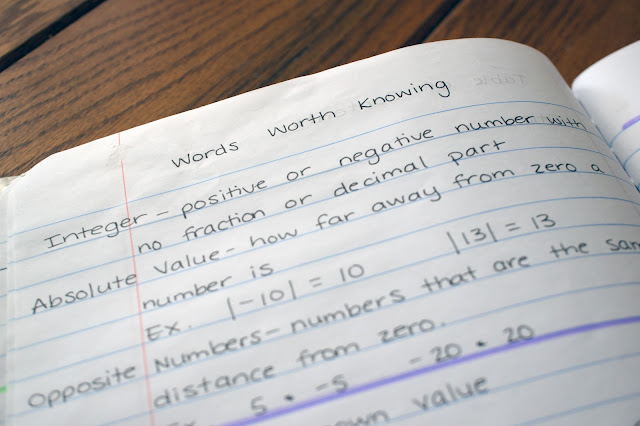 Words Worth Knowing
Integer - positive or negative number with
no fraction or decimal part
Absolute Value - how far away from zero a
number is
Ex. |-10| = 10 |13| = 13
Opposite Numbers - numbers that are the
distance from zero.
5 • -5 -20 • 20
value